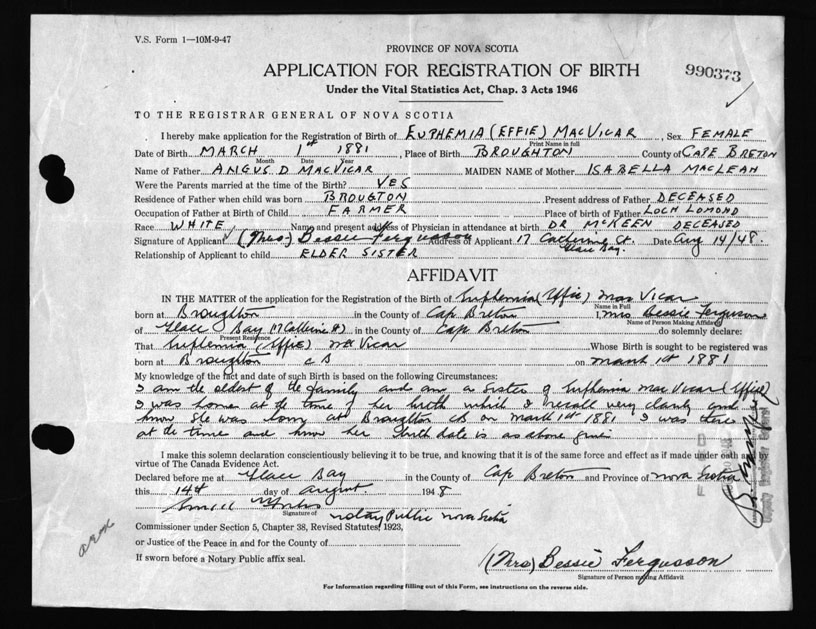 V.S. Form 1—10M-9-47
PROVINCE OF NOVA SCOTIA
APPLICATION FOR REGISTRATION OF BIRTH
990373
Under the Vital Statistics Act, Chap. 3 Acts 1946
TO THE REGISTRAR GENERAL OF NOVA SCOTIA
I hereby make application for the Registration of Birth of EUPHEMIA (EFFIE) MACVICAR, Sex FEMALE
Print Name in full
Date of Birth MARCH 1st 1881, Place of Birth BROUGHTON County of CAPE BRETON
Month Date Year
Name of Father ANGUS D MACVICAR MAIDEN NAME of Mother ISABELLA MACLEAN
Were the Parents married at the time of the Birth? YES
Residence of Father when child was born BROUGTON Present address of Father DECEASED
Occupation of Father at Birth of Child FARMER Place of birth of Father LOCH LOMOND
Race WHITE, Name and present address of Physician in attendance at birth DR MCKEEN DECEASED
Signature of Applicant (Mrs) Bessie Fergusson Address of Applicant 17 St. Date Aug 14/48.
Glace Bay.
Relationship of Applicant to Child ELDER SISTER
AFFIDAVIT
IN THE MATTER of the application for the Registration of the Birth of Euphemia (Effie) Mac Vicar
born at Broughton in the County of Cap Breton I, Mrs Bessie Ferguson
Name in Full
Name of Person Making Affidavit
of Glace Bay in the County of Cap Breton do solemnly declare:
Present Residence
That Euphemia (Effie) Mac Vicar Whose Birth is sought to be registered was
born at Broughton C B on March 1st 1881
My knowledge of the fact and date of such Birth is based on the following Circumstances:
I am the oldest of the family and am a sister of Euphemia Mac Vicar (Effie)
I was home at the time of her birth which I recall very clearly and
know she was born at Broughton CB on March 1st 1881 I was there
at the time and know her birth date is as above given
I make this solemn declaration conscientiously believing it to be true, and knowing that it is of the same force and effect as if made under oath and by
virtue of The Canada Evidence Act.
Declared before me at Glace Bay in the County of Cap Breton and Province of Nova Scotia
this 14th day of August 1948
Signature of Notary Public Nova Scotia
Commissioner under Section 5, Chapter 38, Revised Statutes, 1923,
or Justice of the Peace in and for the County of
If sworn before a Notary Public affix seal.
(Mrs) Bessie Fergusson
Signature of Person making Affidavit
For Information regarding filling out of this Form, see instructions on the reverse side.